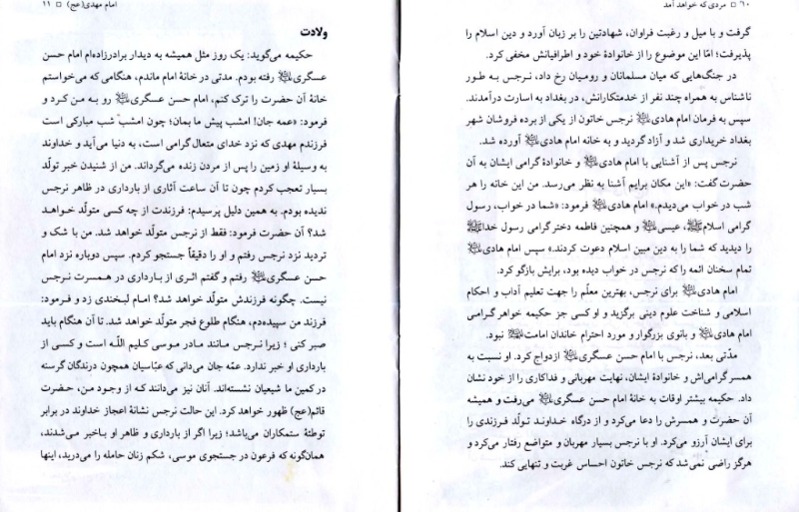 ۶۰ □ مردی که خواهد آمد
گرفت و با میل و رغبت فراوان، شهادتین را بر زبان آورد و دین اسلام را
پذیرفت؛ امّا این موضوع را از خانوادهٔ خود و اطرافیانش مخفی کرد.
در جنگ‌هایی که میان مسلمانان و رومیان رخ داد، نرجس به طور
ناشناس به همراه چند نفر از خدمتکارانش، در بغداد به اسارت درآمدند.
سپس به فرمان امام هادی﷣ نرجس خاتون از یکی از برده فروشان شهر
بغداد خریداری شد و آزاد گردید و به خانه امام هادی﷣ آورده شد.
نرجس پس از آشنایی با امام هادی﷣ و خانوادهٔ گرامی ایشان به آن
حضرت گفت: «این مکان برایم آشنا به نظر می‌رسد. من این خانه را هر
شب در خواب می‌دیدم.» امام هادی﷣ فرمود: «شما در خواب، رسول
گرامی اسلامﷺ، عیسی﷣ و همچنین فاطمه دختر گرامی رسول خداﷺ
را دیدید که شما را به دین مبین اسلام دعوت کردند.» سپس امام هادی﷣
تمام سخنان ائمه را که نرجس در خواب دیده بود، برایش بازگو کرد.
امام هادی﷣ برای نرجس، بهترین معلّم را جهت تعلیم آداب و احکام
اسلامی و شناخت علوم دینی برگزید و او کسی جز حکیمه خواهر گرامی
امام هادی﷣ و بانوی بزرگوار و مورد احترام خاندان امامت نبود.
مدّتی بعد، نرجس با امام حسن عسگری﷣ ازدواج کرد. او نسبت به
همسر گرامی‌اش و خانوادهٔ ایشان، نهایت مهربانی و فداکاری را از خود نشان
داد. حکیمه بیشتر اوقات به خانهٔ امام حسن عسگری﷣ می‌رفت و همیشه
آن حضرت و همسرش را دعا می‌کرد و از درگاه خداوند تولّد فرزندی را
برای ایشان آرزو می‌کرد. او با نرجس بسیار مهربان و متواضع رفتار می‌کرد و
هرگز راضی نمی‌شد که نرجس خاتون احساس غربت و تنهایی کند.
امام مهدی(عج) □ ۱۱
ولادت
حکیمه می‌گوید: یک روز مثل همیشه به دیدار برادرزاده‌ام امام حسن
عسگری﷣ رفته بودم. مدتی در خانهٔ امام ماندم، هنگامی که می‌خواستم
خانهٔ آن حضرت را ترک کنم، امام حسن عسگری﷣ رو به من کرد و
فرمود: «عمه جان! امشب پیش ما بمان؛ چون امشب شب مبارکی است
فرزندم مهدی که نزد خدای متعال گرامی است، به دنیا می‌آید و خداوند
به وسیلهٔ او زمین را پس از مردن زنده می‌گرداند. من از شنیدن خبر تولّد
بسیار تعجب کردم چون تا آن ساعت آثاری از بارداری در ظاهر نرجس
ندیده بودم. به همین دلیل پرسیدم: فرزندت از چه کسی متولّد خواهد
شد؟ آن حضرت فرمود: فقط از نرجس متولّد خواهد شد. من با شک و
تردید نزد نرجس رفتم و او را دقیقاً جستجو کردم. سپس دوباره نزد امام
حسن عسگری﷣ رفتم و گفتم اثری از بارداری در همسرت نرجس
نیست. چگونه فرزندش متولّد خواهد شد؟ امام لبخندی زد و فرمود:
فرزند من سپیده‌دم، هنگام طلوع فجر متولّد خواهد شد. تا آن هنگام باید
صبر کنی ؛ زیرا نرجس مانند مادر موسی کلیم اللّه است و کسی از
بارداری او خبر ندارد. عمّه جان می‌دانی که عبّاسیان همچون درندگان گرسنه
در کمین ما شیعیان نشسته‌اند. آنان نیز می‌دانند که از وجود من، حضرت
قائم(عج) ظهور خواهد کرد. این حالت نرجس نشانهٔ اعجاز خداوند در برابر
توطئهٔ ستمکاران می‌باشد؛ زیرا اگر از بارداری و ظاهر او باخبر می‌شدند،
همان‌گونه که فرعون در جستجوی موسی، شکم زنان حامله را می‌درید، اینها